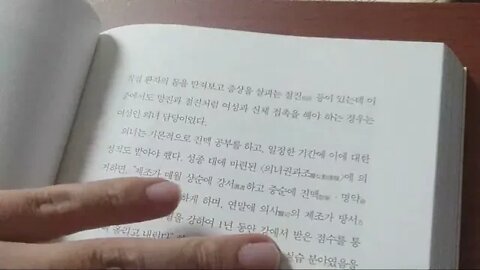 직접 환자의 몸을 만져보고 증상을 살피는 절진 등이 있는데 이
중에서도 망진과 절진처럼 여성과 신체 접촉을 해야 하는 경우는
여성인 의녀 담당이었다.
의녀는 기본적으로 진맥 공부를 하고, 일정한 기간에 이에 대한
성적도 받아야 했다. 성종 대에 마련된 〈의녀권과조〉에 의
거하면, "제조가 매월 상순에 강서하고 중순에 진맥 · 명약
하게 하며, 연말에 의사의 제조가 방서
을 강하여 1년 동안 강에서 받은 점수를 통
올리고 내린다"
실습 분야였음을